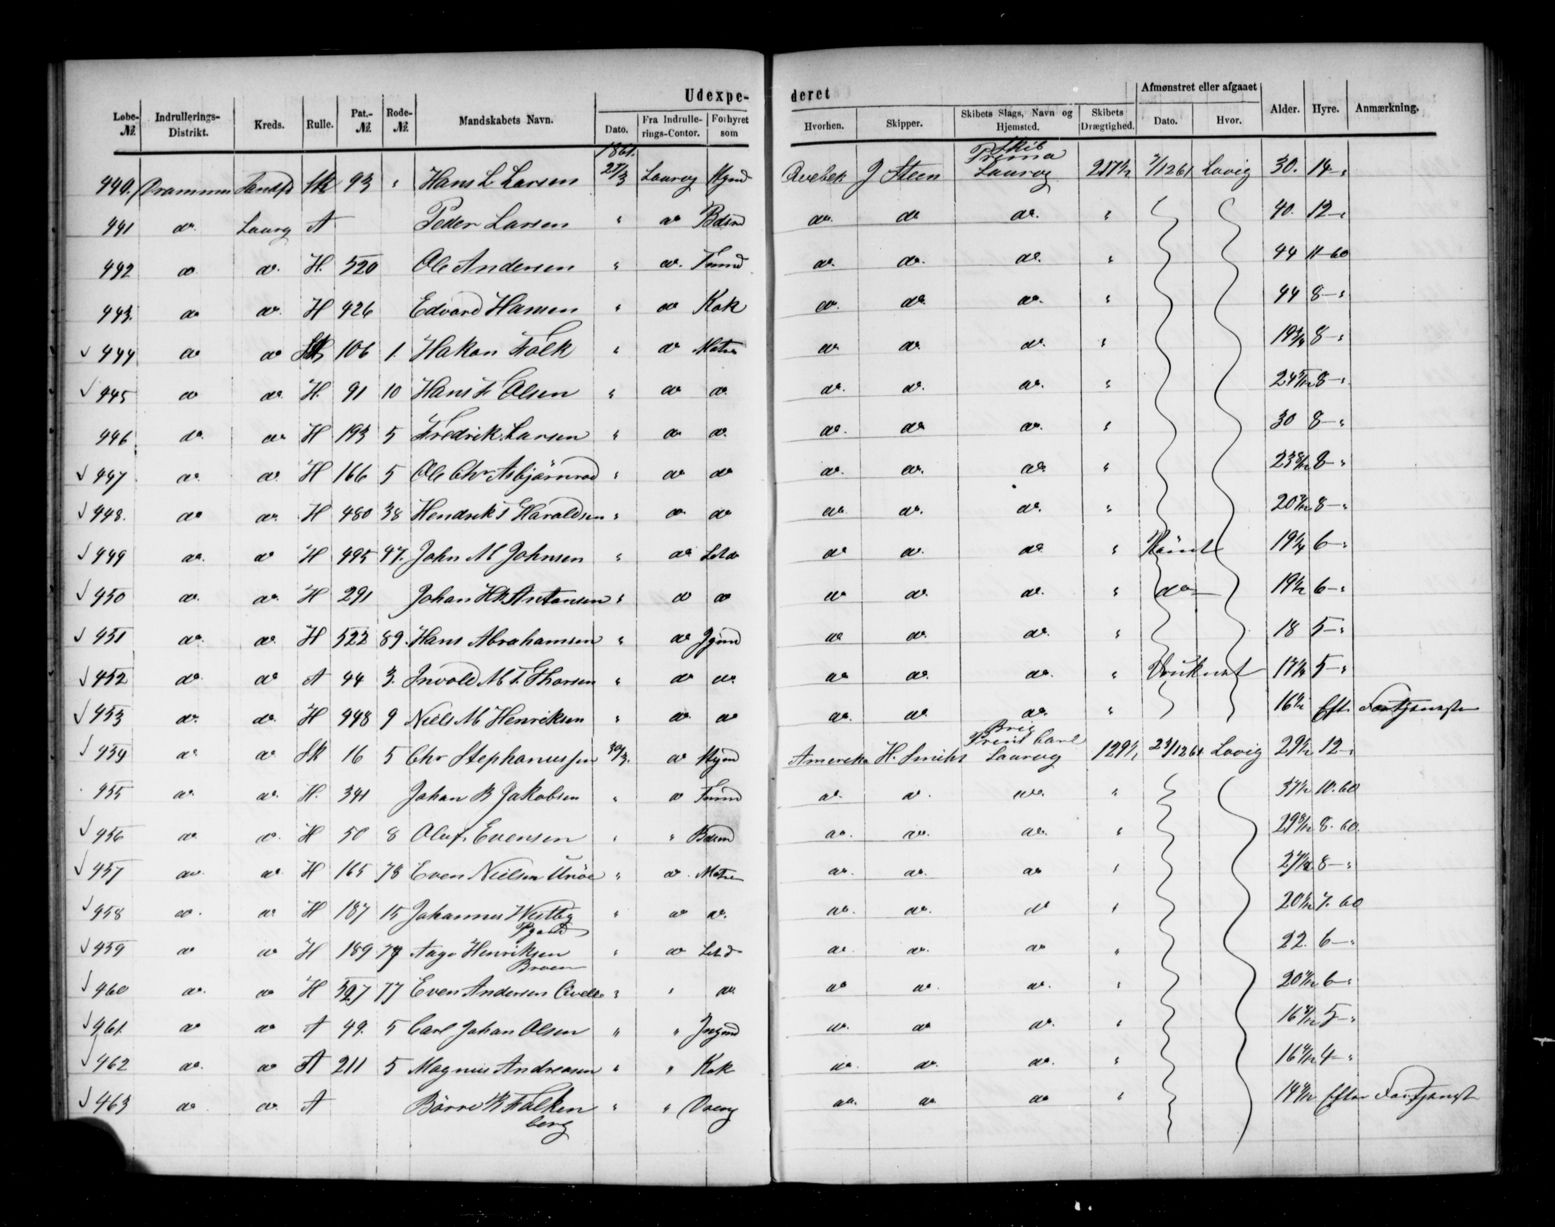 Udexpe- deret
Lobe-№ Indrullerings-Distrikt. Kreds. Rulle. Pat.-№ Rode-№ Mandskabets Navn. Dato. Fra Indrulle-rings-Contor. Forhyret som Hvorhen. Skipper. Skibets Slags, Navn og Hjemsted. Skibets Drægtighed. Afmønstret eller afgaaet Dato. Hvor. Alder. Hyre. Anmærkning.
1861.
440 Drammen Sandfd Sk 93 " Hans L Larsen 25/3 Laurvig Stymd Qvebek J Steen Skib Prima Laurvig 257½ 7/12 61 Lavig 30. 14-"
441 do. Laurvig A Peder Larsen " do Bdsmd do. do do. " 40. 12-"
442 do do. H. 520 Ole Andersen " do. Tmmd do. do. do. " 44 11-60
443. do do. H 426 Edvard Hansen " do Kok do. do. do. " 44 8-"
444 do do Sk 106 1. Hakon Falk " do Matrs do do. do. " 8-"
445 do do. H. 91 10 Hans F Olsen " do do do. do. do. " 8-"
446 do. do. H 193 5 Fredrik Larsen " do do do. do do. " 30 8-"
447 do. do. H 166 5 Ole Chr Asbjörnrød " do do do. do. do " 8-"
448. do do. H 480 38 Hendrik T Haraldsen " do do do do. do. " 8-"
449 do. do H 495 47. John M Johnsen " do Letm do do. do " Rømt 6-"
450 do. do. H 291 Johan H Antonsen " do do do do. do. " do 6-"
451 do. do. H 522 89. Hans Abrahamsen " do Jgmd do do. do. " 18 5-"
452 do. do A 44 3. Invold M T Thorsen " do do. do do. do. " Druknet 17½ 5-"
453 do. do. H 448 9 Niels M Henriksen " do do do. do do. " Eft. Fortjeneste
454 do do Sk 16 5 Chr Stephanussen 30/3. do Stymd Amerika H. Smith Brig Prins Carl Laurvig 129½ 21/12 61 Lavig 12-"
455 do. do. H. 341 Johan B Jakobsen " do Tmmd do. do. do. " 10. 60
456 do do. H 50 8 Oluf Evensen " " Bdsmd do. do. do. " 8. 60.
457 do. do H 165 78 Even Nielsen Unöe " do. Matrs do. do. do " 8-"
458 do. do H 187 15 Johannes Westby " do do. do. do. do " 7. 60
459 do do H 189 79 Aage Henriksen " do Letm do. do. do " 22. 6-"
460 do. do H 527 77 Even Andersen " " do. do do. do. " 6-"
461 do do A 49. 5 Carl Johan Olsen " " Jngmd do. do do. " 5-"
462 do. do A 211 5 Magnus Andreasen " " Kok do. do. do " 4-"
463 do. do. A Börre B Falken berg " " Dreng do. do do " Efter Fortjenest